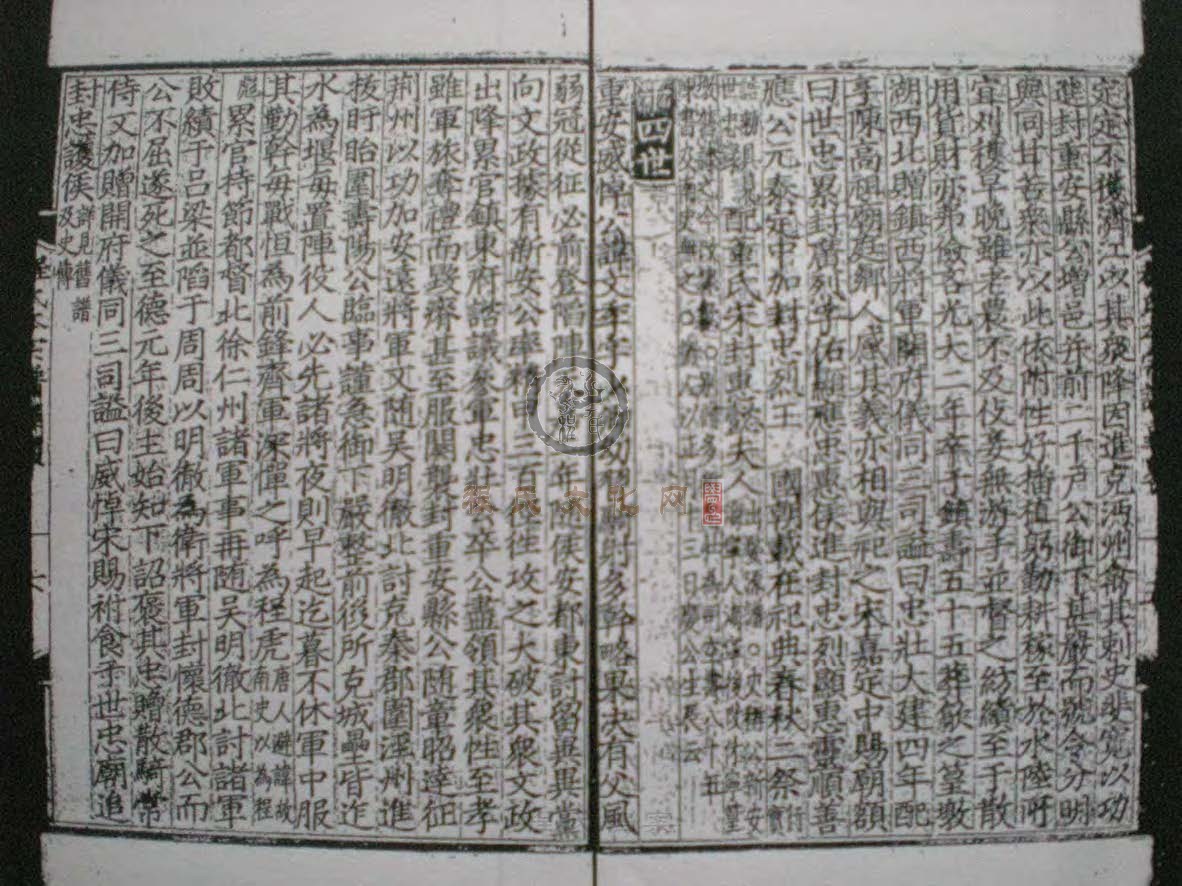 定定不獲濟江以其嶺降因進克沔州禽其刺史裴寬以功
進封重安縣公增邑并前二千户公御下甚嚴而號令分明
與同甘苦衆亦以此依附性好播植躬勤耕稼至於水陸所
宜刈穫早晚雖老農不及伎妾無游手並督之紡績至于散
用貨財亦弗儉吝光大二年卒于鎮壽五十五葬歙之篁墩
湖西北贈鎮西將軍開府儀同三司謚曰忠壯大建四年配
享陳高祖廟庭鄉人感其義亦相與祀之宋嘉定中賜廟額
曰世忠累封廣烈孚佑顯應惠侯進封忠烈顯惠靈順善
應公元泰定中加封忠烈王國朝載在祀典春秋二祭
配董氏宋封重安夫人
四世
重安威悼公諱文季字 幼 騎射多幹略果决有父風
弱冠從征必前登陷陣 年隨侯安都東討留異異黨
向文政據有新安公率精甲三百往攻之大破其衆文政
出降累官鎮東府諮議參軍忠壯公卒公盡領其衆性至孝
雖軍旅奪禮而毁瘠甚至服闋襲封重安縣公隨章昭達征
荆州以功加安遠將軍又随吴明徹北討克秦郡圍涇州進
拔盱眙圍壽陽公臨事謹急御下嚴整前後所克城壘皆迮
水為堰每置陣役人必先諸將夜則早起迄暮不休軍中服
其勤幹每戰恒為前鋒齊軍深憚之呼為程虎唐人避諱故南史以為程
彪累官持節都督北徐仁州諸軍事再随吴明徹北討諸軍
敗績于吕梁並䧟于周周以明徹為衛將軍封懷德郡公而
公不屈遂死之至德元年後主始知下詔褒其忠贈散騎常
侍又加贈開府儀同三司謚曰威悼宋賜祔食于世忠廟追
封忠護侯詳見舊譜及史傳
程氏文化网